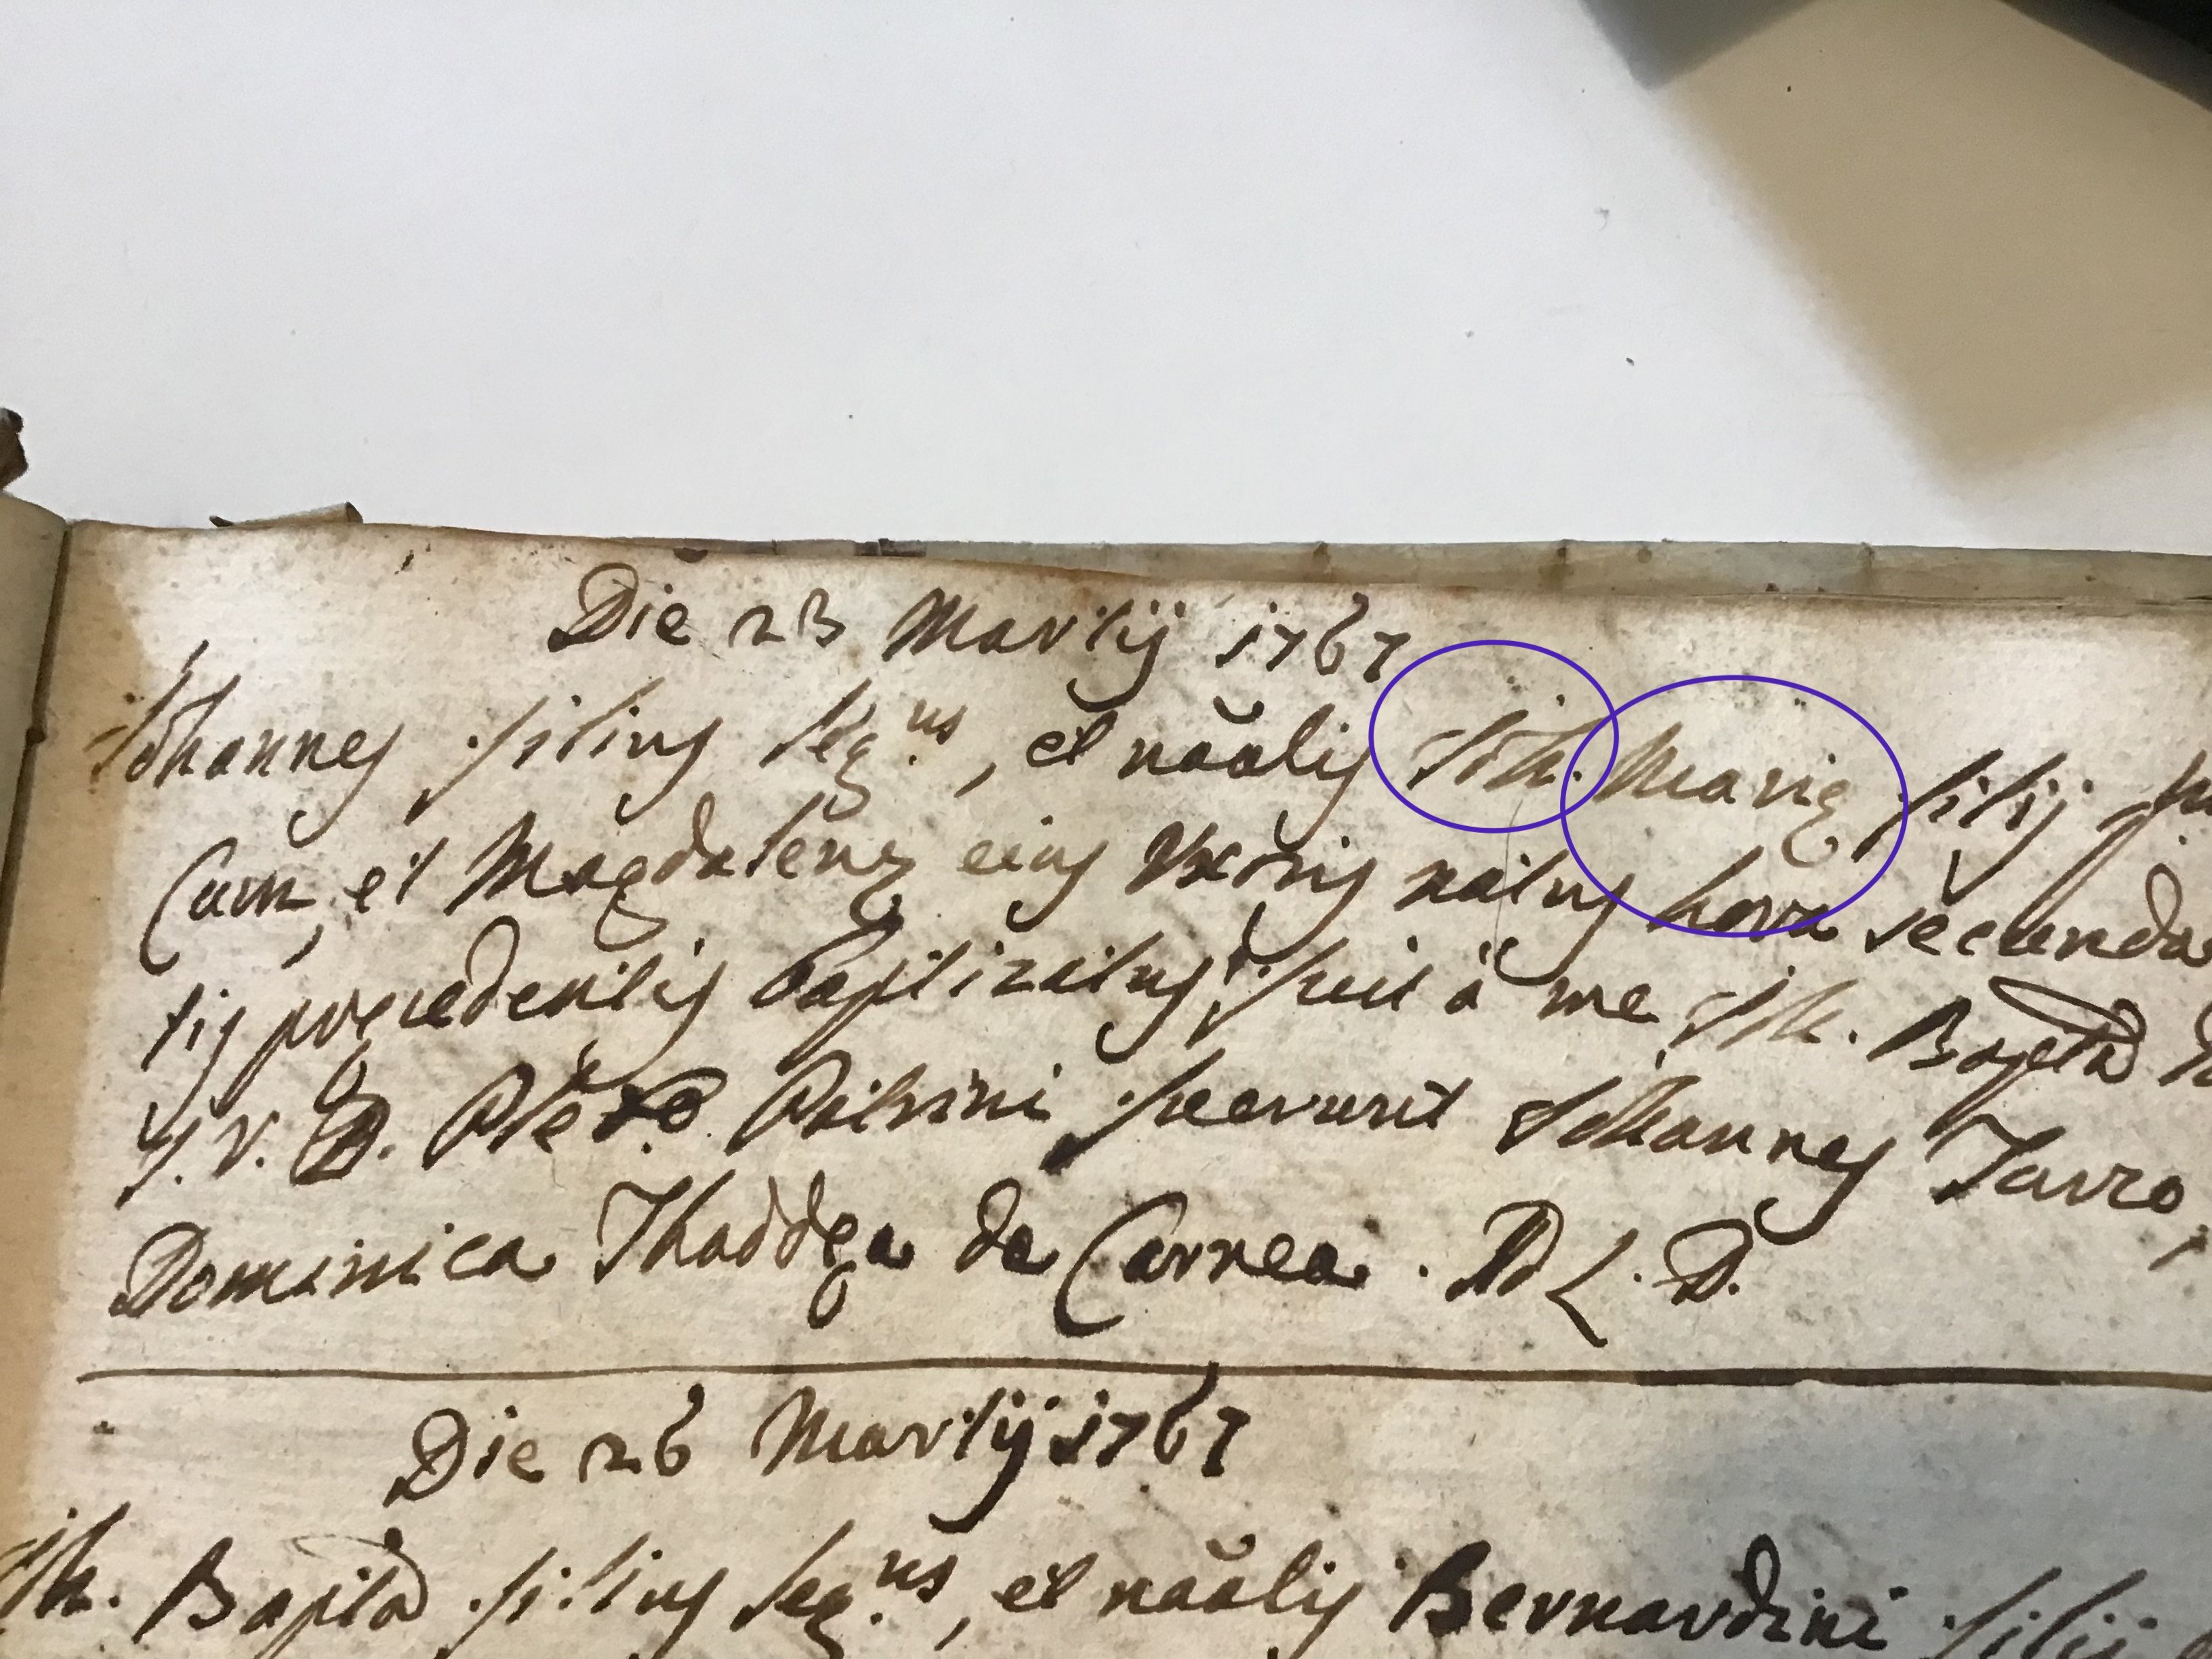 Die 23 Martij 1767
Iohannes filius leg.us, et nãalis Ioh. Marię filij
Cum, et Magdalenę eius Vxoris natus hora secunda
tis pręcedentis baptizatus fuit à me Ioh. Bapta
J. V. D. Pňe Pàtrini fuerunt Iohannes Turro,
Dominica Thaddęa de Carnea. AD L. D.
Die 26 Martij 1767
Ioh. Bapta filius leg.us, et nãalis Bernardini filij